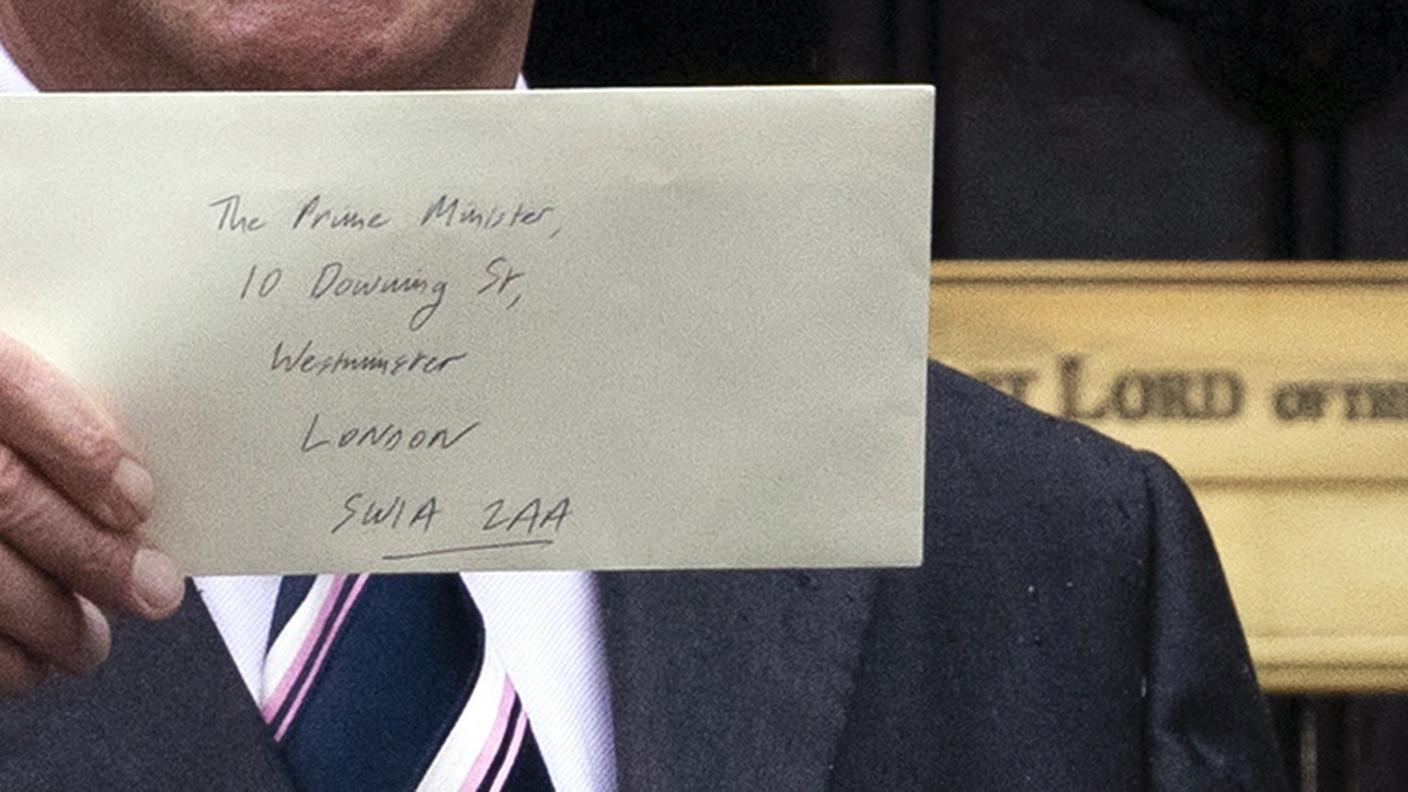 The Prime Minister,
10 Downing St,
Westminster
London
SW1A 2AA
LORD OF THE